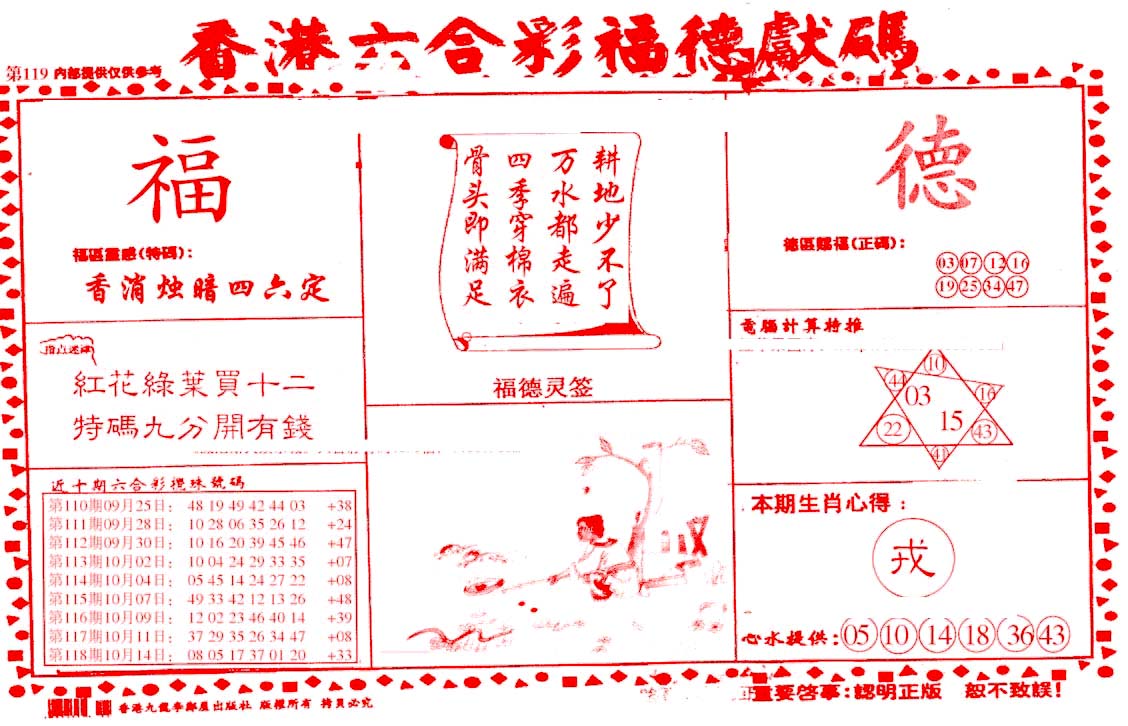 香港六合彩福德獻碼
第119 内部提供仅供参考
福
福區靈感(特碼):
香消烛暗四六定
紅花綠葉買十二
特碼九分開有錢
近十期六合彩攪珠號碼
第110期09月25日: 48 19 49 42 44 03 +38
第111期09月28日: 10 28 06 35 26 12 +24
第112期09月30日: 10 16 20 39 45 46 +47
第113期10月02日: 10 04 24 29 33 35 +07
第114期10月04日: 05 45 14 24 27 22 +08
第115期10月07日: 49 33 42 12 13 26 +48
第116期10月09日: 12 02 23 46 40 14 +39
第117期10月11日: 37 29 35 26 34 47 +08
第118期10月14日: 08 05 17 37 01 20 +33
耕地少不了
万水都走遍
四季穿棉衣
骨头即满足
福德灵签
德
德區賜福(正碼):
03 07 12 16
19 25 34 47
電腦計算特推
10
44 03 16
22 15 43
41
本期生肖心得:
戎
心水提供: 05 10 14 18 36 43
香港九龍李鄭屋出版社 版權所有 拷貝必究
重要啓事:認明正版 恕不致誤!